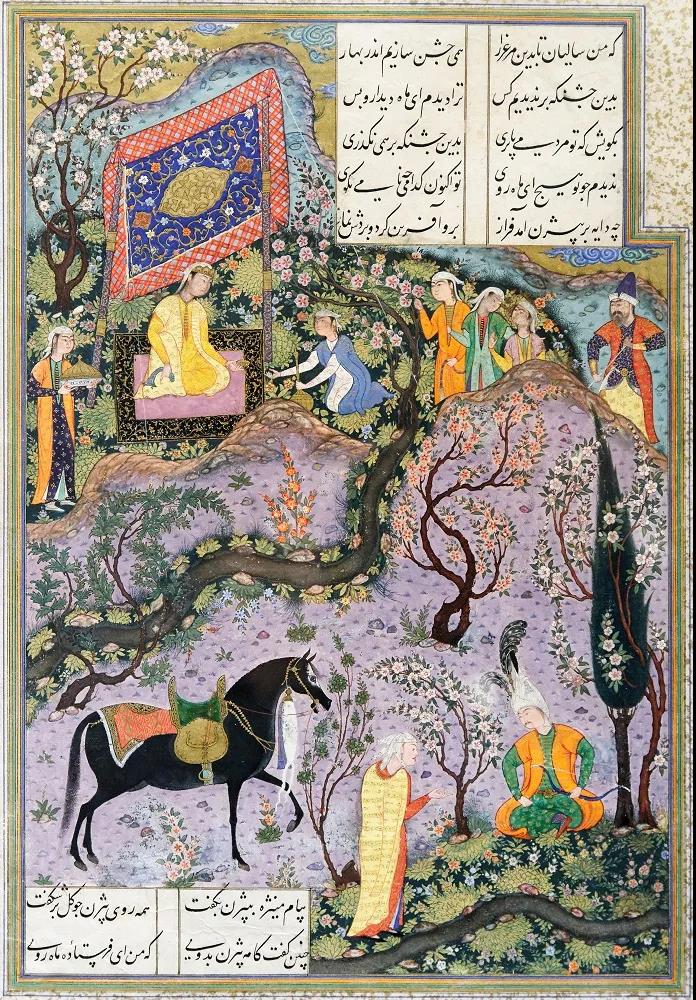 که من سالیان تا بدین مرغزار همی جشن سازیم اندر بهار
بدین جشنگه بر ندیدیم کس ترا دیدم ای ماه دیدار و بس
بگویش که تو مردمی یا پری بدین جشنگه بر
ندیدم چو تو هیچ ای ماه روی تو اکنون
چه دایه بر بیژن آمد فراز برو آفرین کرد و بردش نماز
پیام منیژه به بیژن بگفت همه روی بیژن چو گل بر شکفت
چنین گفت بیژن بدوی که من ای فرستاده ماه روی